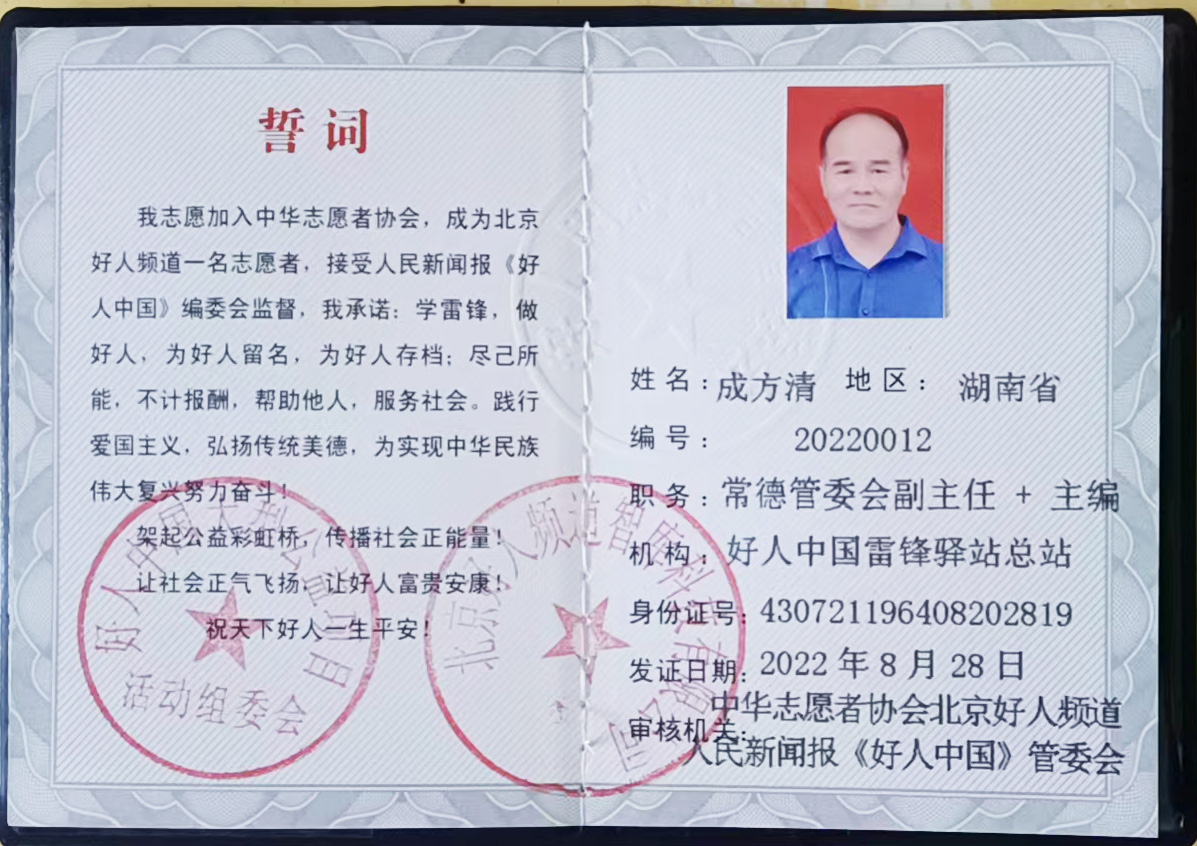 誓词
我志愿加入中华志愿者协会，成为北京
好人频道一名志愿者，接受人民新闻报《好
人中国》编委会监督，我承诺：学雷锋，做
好人，为好人留名，为好人存档；尽己所
能，不计报酬，帮助他人，服务社会。践行
爱国主义，弘扬传统美德，为实现中华民族
伟大复兴努力奋斗！
架起公益彩虹桥，传播社会正能量！
让社会正气飞扬，让好人富贵安康！
祝天下好人一生平安！
好人中国大型公益项目
活动组委会
北京好人频道智库科技有限公司
姓名：成方清 地区：湖南省
编号：20220012
职务：常德管委会副主任 + 主编
机构：好人中国雷锋驿站总站
身份证号：430721196408202819
发证日期：2022年8月28日
审核机关：中华志愿者协会北京好人频道
人民新闻报《好人中国》管委会